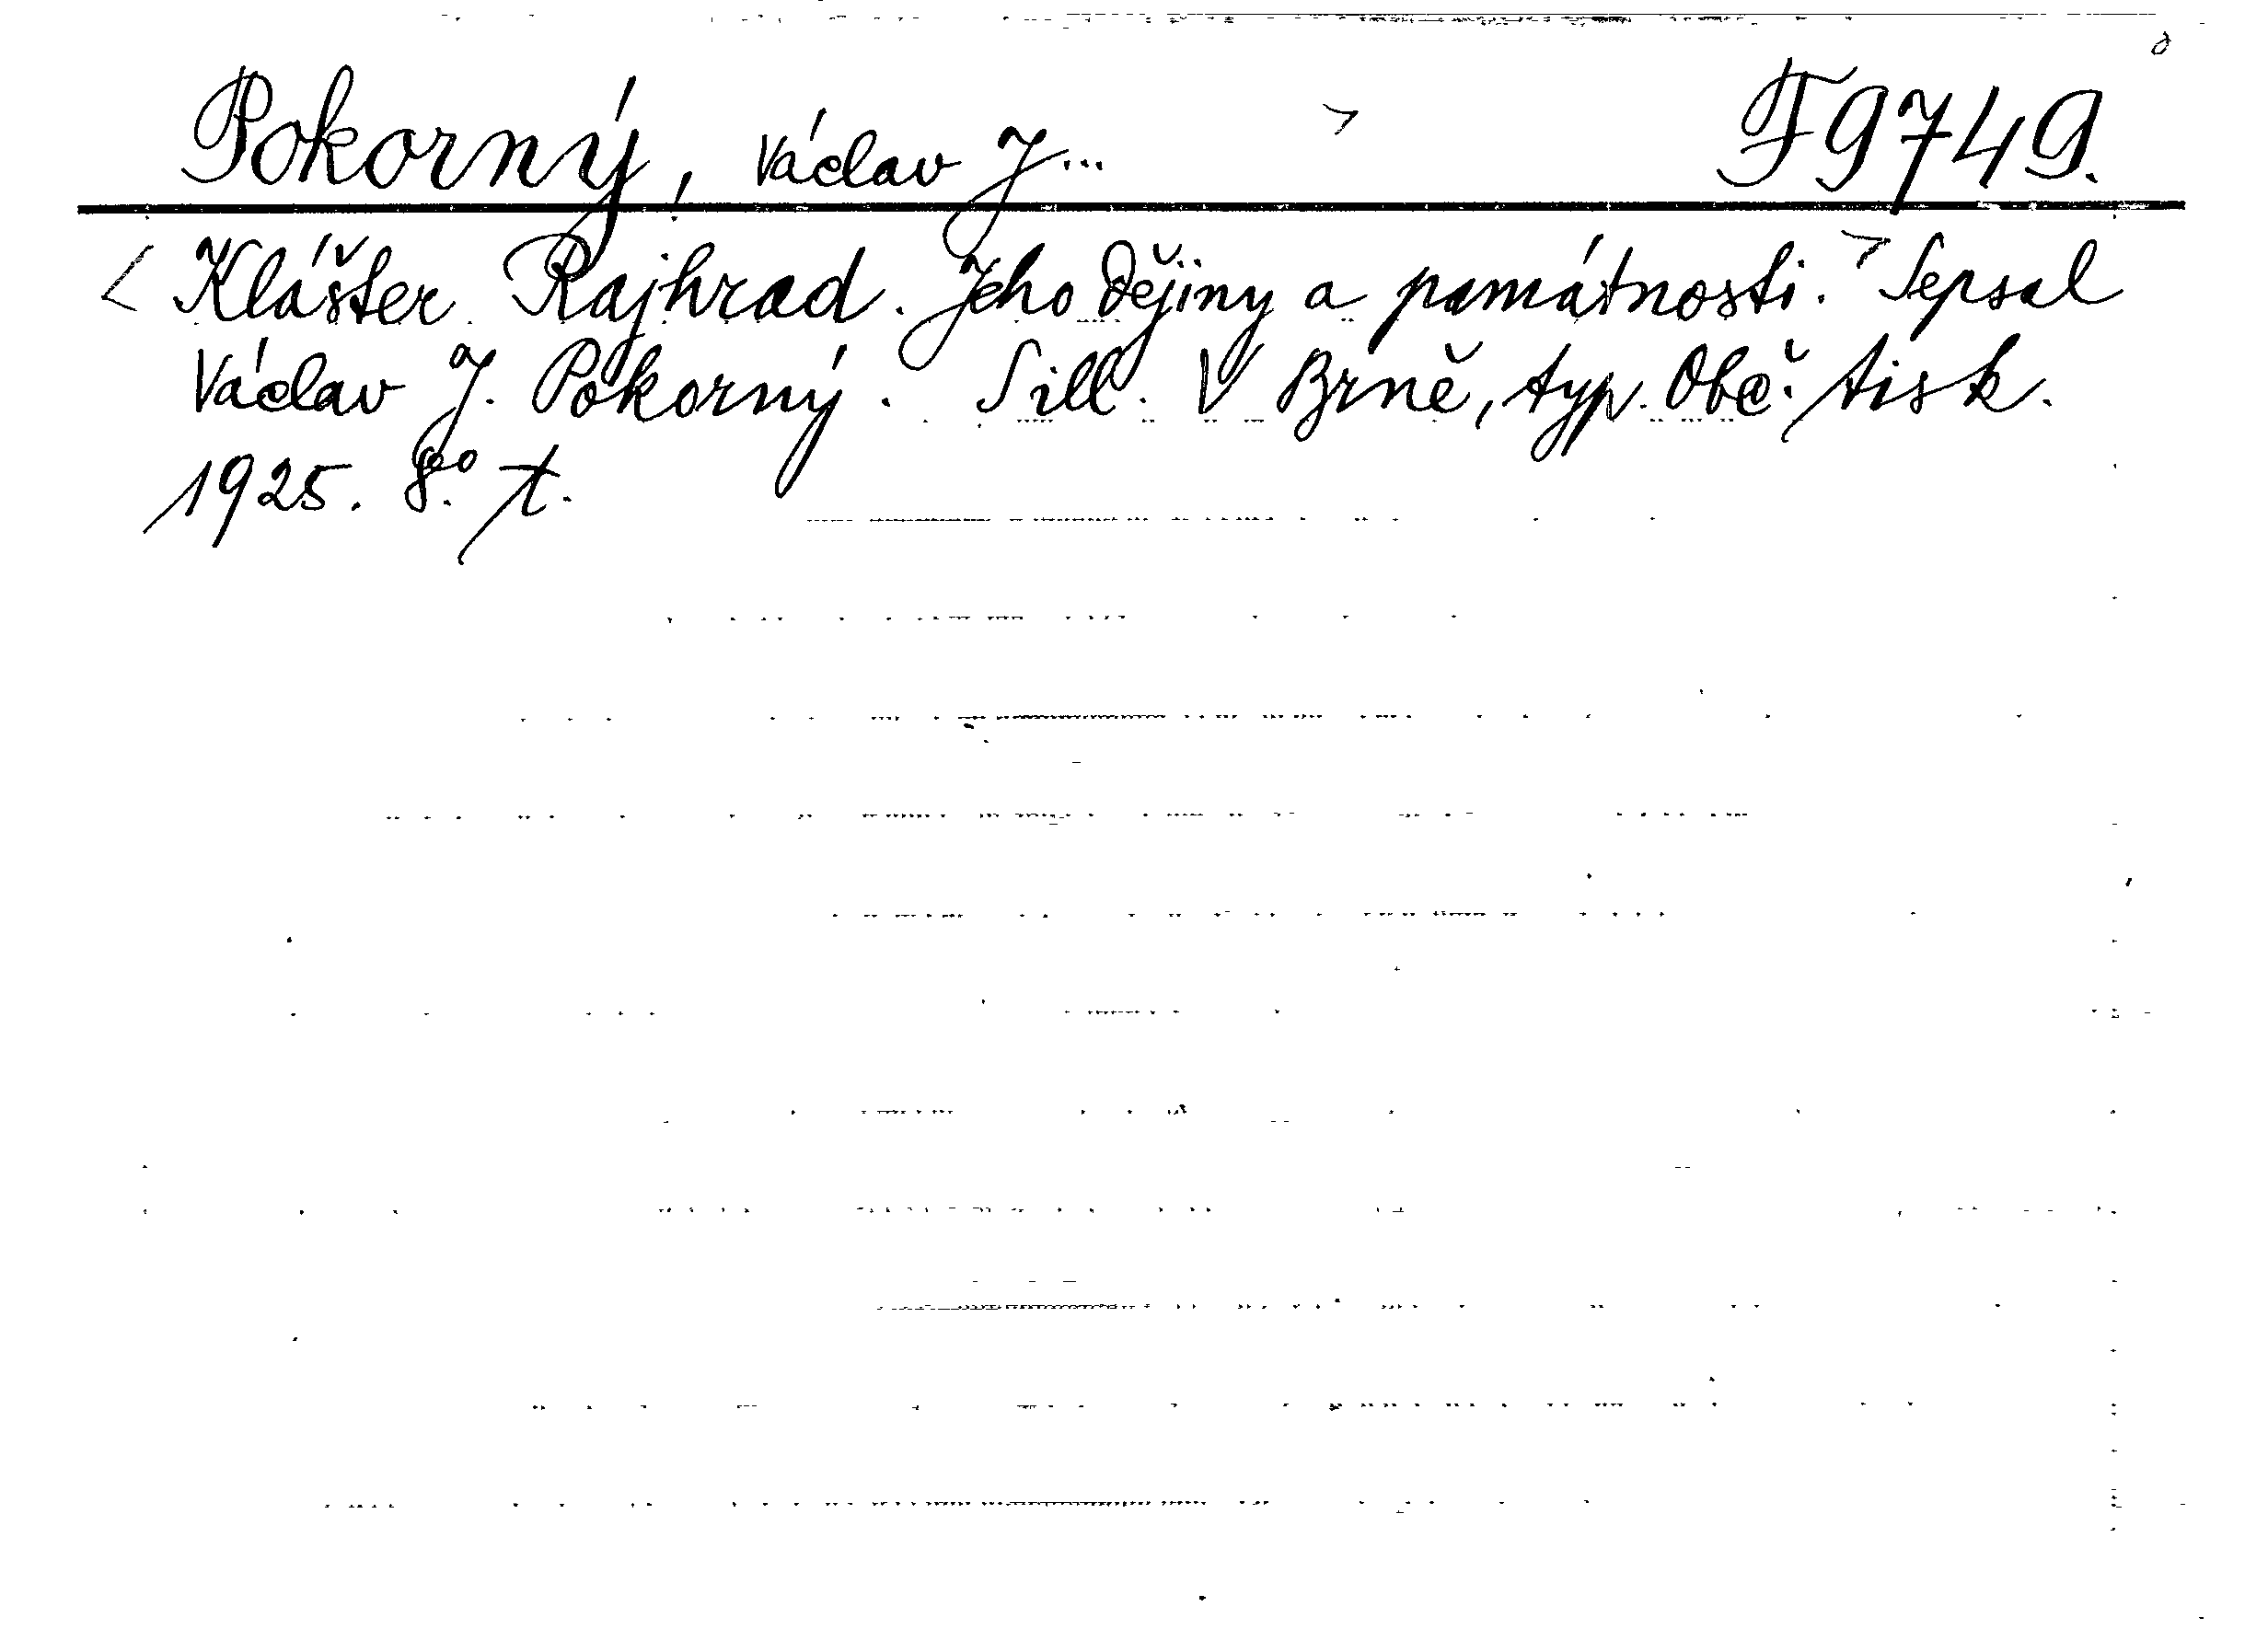 Pokorný, Václav J... > F9749.
< Klášter Rajhrad. Jeho dějiny a památnosti. > Sepsal
Václav J. Pokorný. S ill. V Brně, typ. Obč. tisk.
1925. 8.° t.